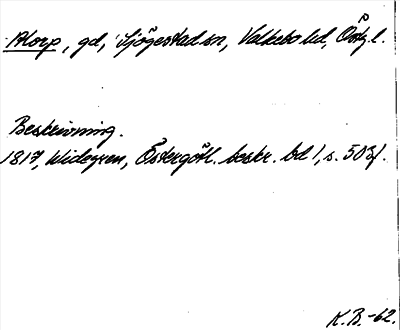 Atorp, gd, Sjögestad sn, Valkebo hd, Östg l.
Beskrivning.
1817, Widegren, Östergötl. beskr. bd 1, s. 503f.
K.B.-62.